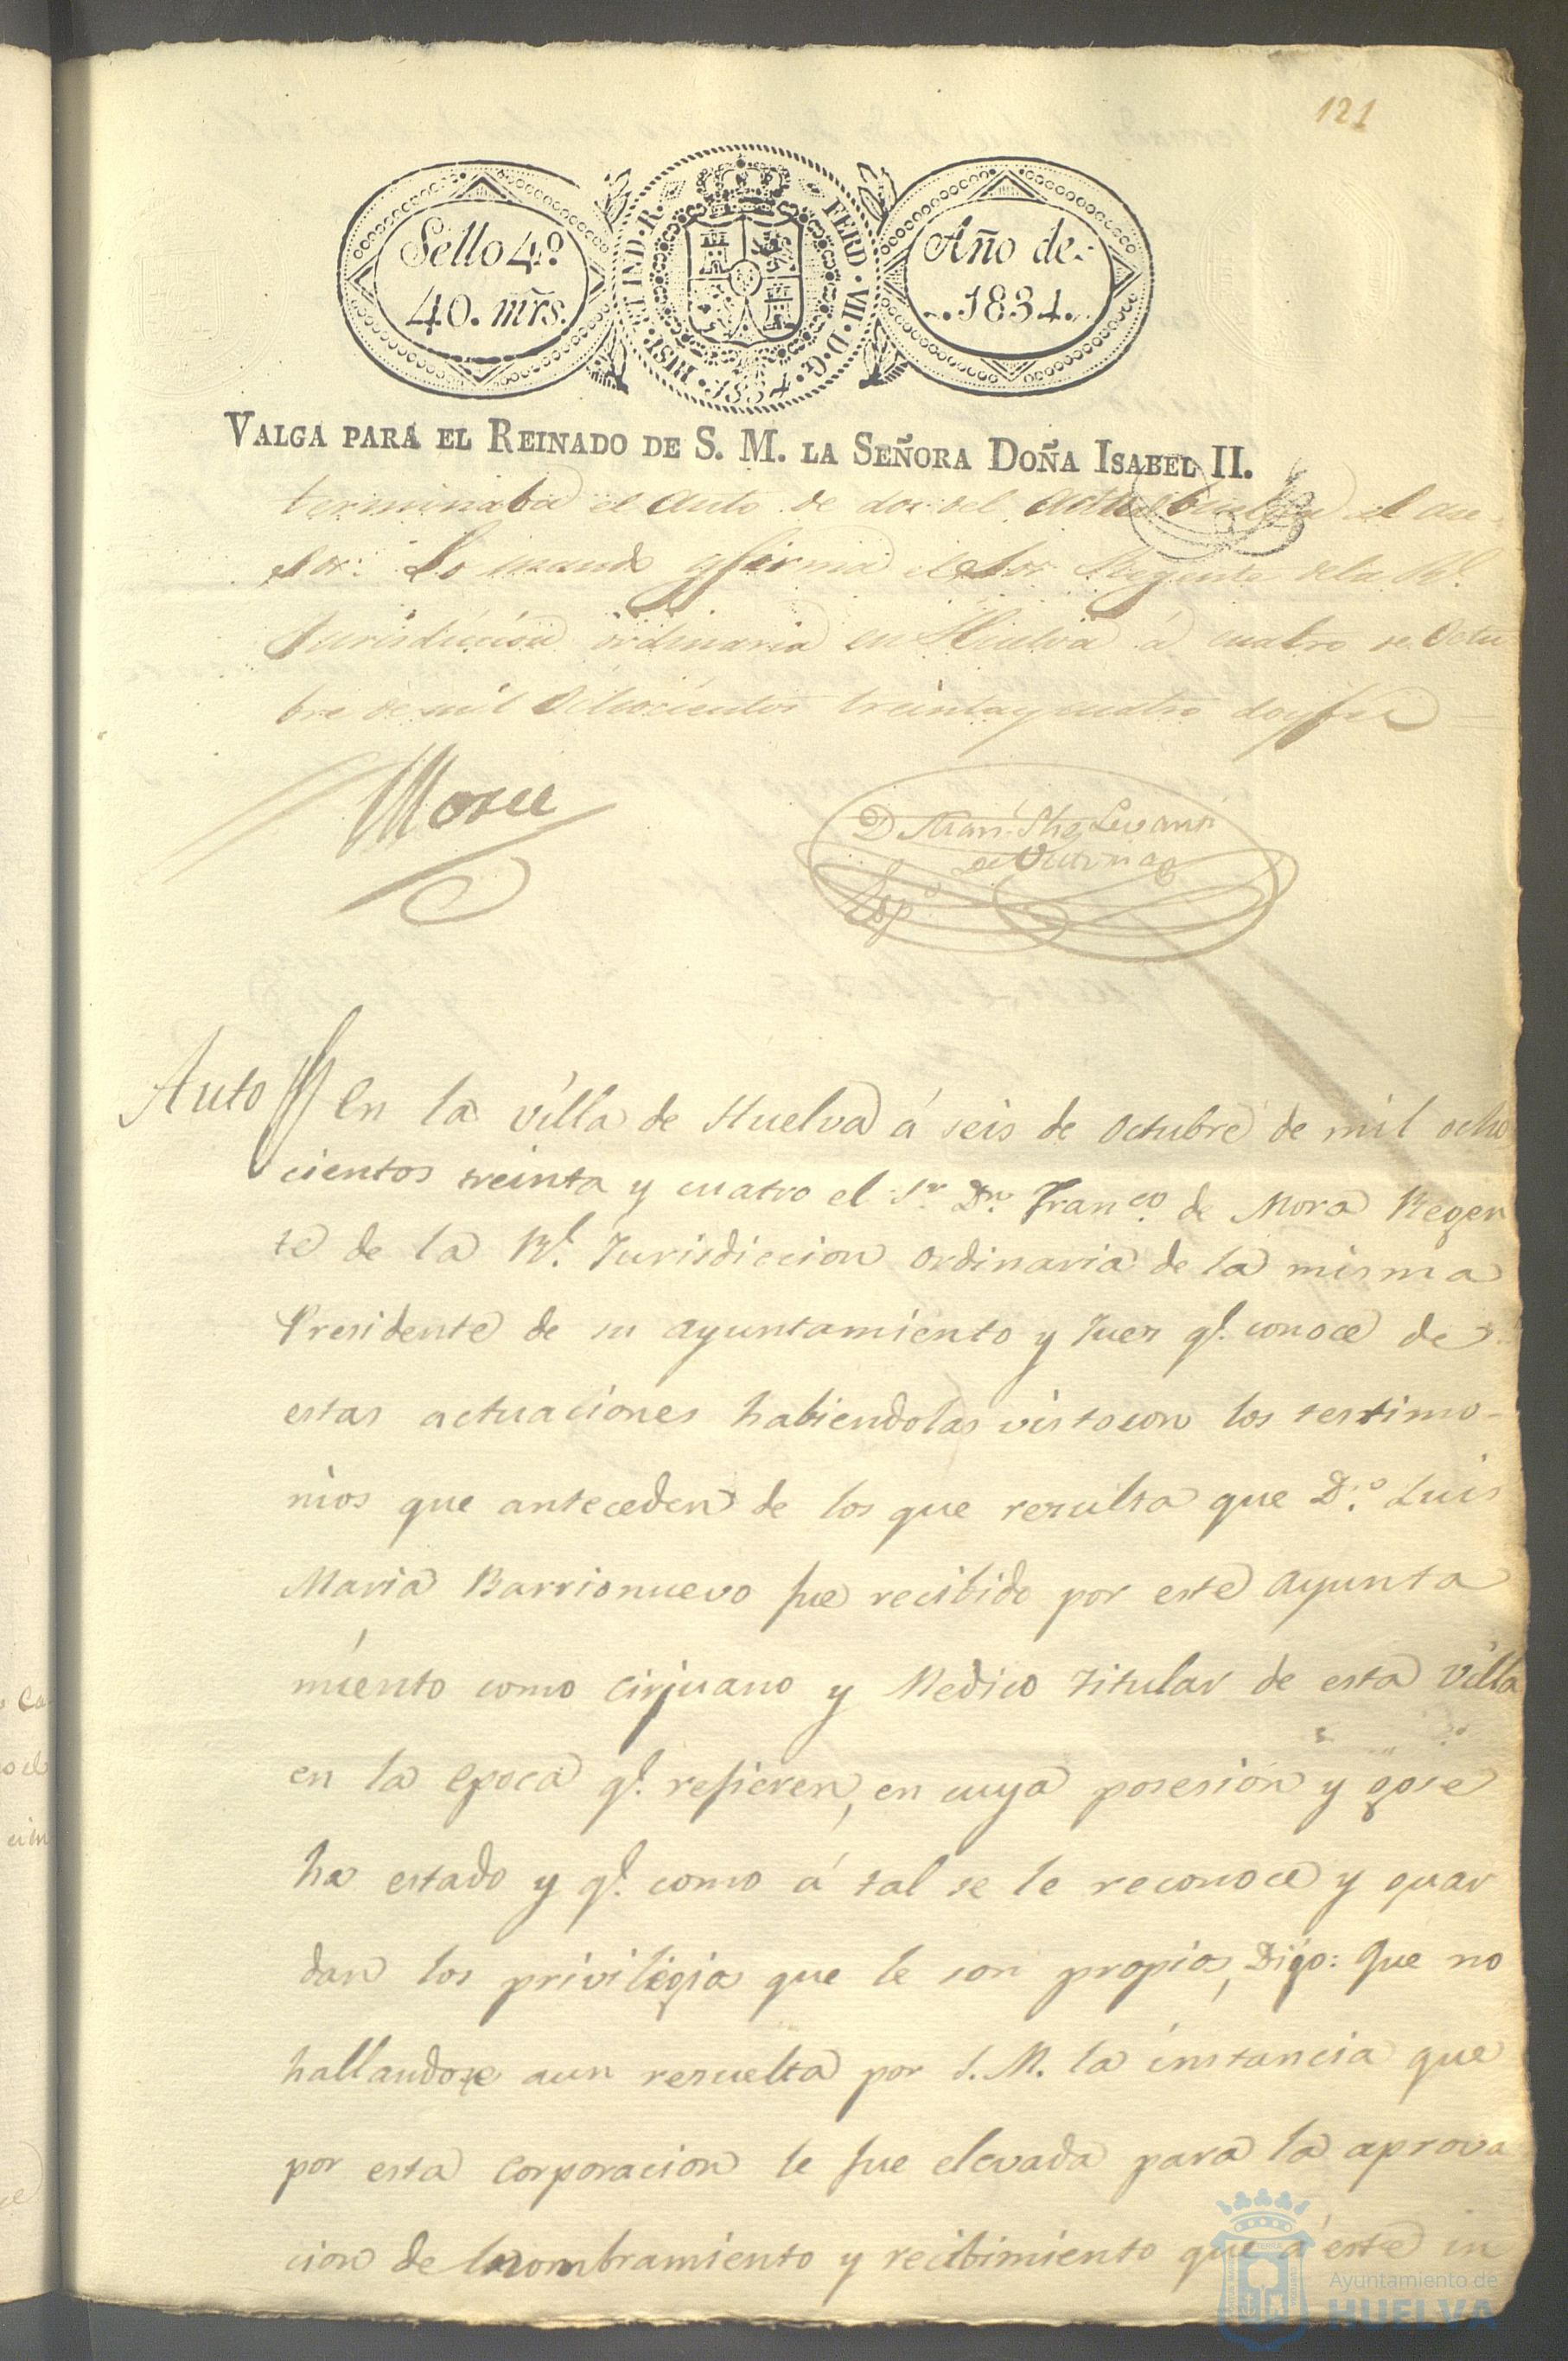 121
Sello 4º.
40. mrs.
HISP. ET IND. R. FERD. VII. D. G. 1834.
Año de:
1834.
VALGA PARA EL REINADO DE S. M. LA SEÑORA DOÑA ISABEL II.
terminaba el Auto de dos del actual el ase
sor: Lo mandó y firma el Sor Regente de la Rl.
Jurisdiccion ordinaria en Huelva á cuatro de Octu
bre de mil Ochocientos treinta y cuatro doy fee =
Mora
D
de
Auto En la villa de Huelva á seis de Octubre de mil ocho
cientos treinta y cuatro el Sr. Dn. Franco. de Mora Regen
te de la Rl. Jurisdiccion ordinaria de la misma
Presidente de su Ayuntamiento y Juez q.e conoce de
estas actuaciones habiendolas visto con los testimo-
nios que anteceden de los que resulta que D.o Luis
Maria Barrionuevo fue recibido por este Ayunta
miento como Cirjuano y Medico titular de esta Villa
en la epoca q.e refieren, en cuya posesión y gose
ha estado y q.e como á tal se le reconoce y guar
dan los privilegios que le son propios, Dijo: Que no
hallandose aun resuelta por S. M. la instancia que
por esta Corporacion le fue elevada para la aprova
cion del nombramiento y recibimiento que á este in
Ayuntamiento de
HUELVA